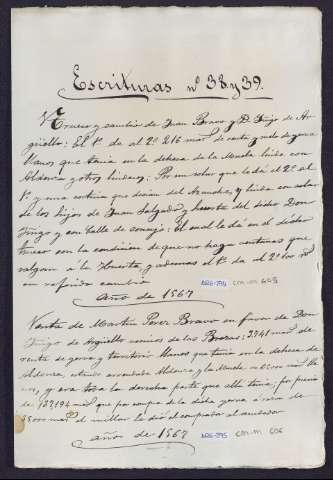 Escrituras nº 38 y 39.
Trueco y cambio de Juan Bravo y D. Iñigo de Ar-
güello: El 1º da al 2º 216 mas de renta y suelo de yerva
llanos que tenia en la dehesa de la Mucela linda con
Aldonza y otros linderos; Por un solar que le dá el 2º al
1º y una cortina que dicen del y linda con solar
de los hijos de Juan Salgado y huerta del dicho Don
Iñigo y con calle de concejo; el cual le da en el dicho
trueco con la condicion de que no haga ventanas que
salgan á la Huerta, y ademas el 1º da al 2º
en referido cambio
Año de 1567
Venta de Martin Perez Bravo en favor de Don
Iñigo de Argüello vecinos de las Brozas: 3741 mas de
renta de yerva y territorio llanos que tenia en la dehesa de
Aldonza, estando arrendada Aldonza y la Mucela en
y era toda la derecha parte que alli tenia; por precio
de 137,194 mas que por compra de la dicha yerva á razon de
35000 mas el millar le dió el comprador al vendedor
Año de 1567